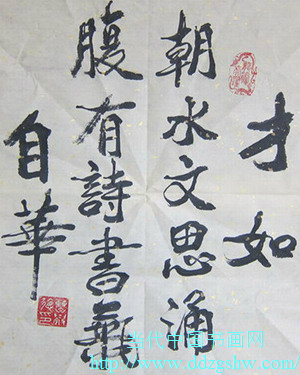 才如
朝水文思涌
腹有詩書氣
自華
当代中国书画网
http://www.ddzgshw.com